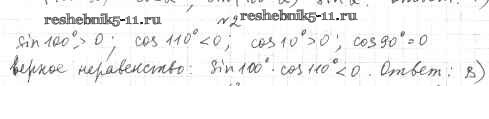 reshebnik5-11.ru
№2 reshebnik5-11.ru
sin100°>0; cos 110°<0; cos10°>0; cos90°=0
верное неравенство: sin100°·cos110°<0. Ответ: в)